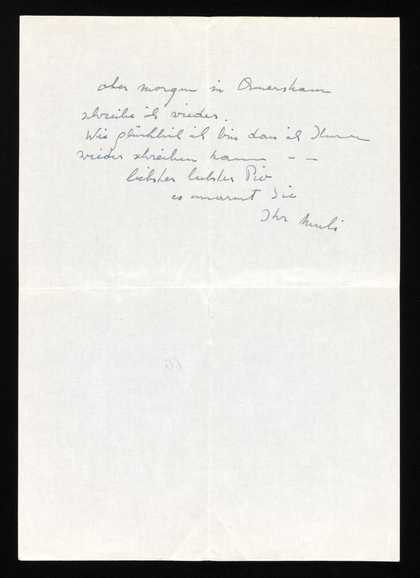 aber morgen in Amersham
schreibe ich wieder.
Wie glücklich ich bin dass ich Ihnen
wieder schreiben kann – –
liebster liebster Pio
es umarmt Sie
Ihr